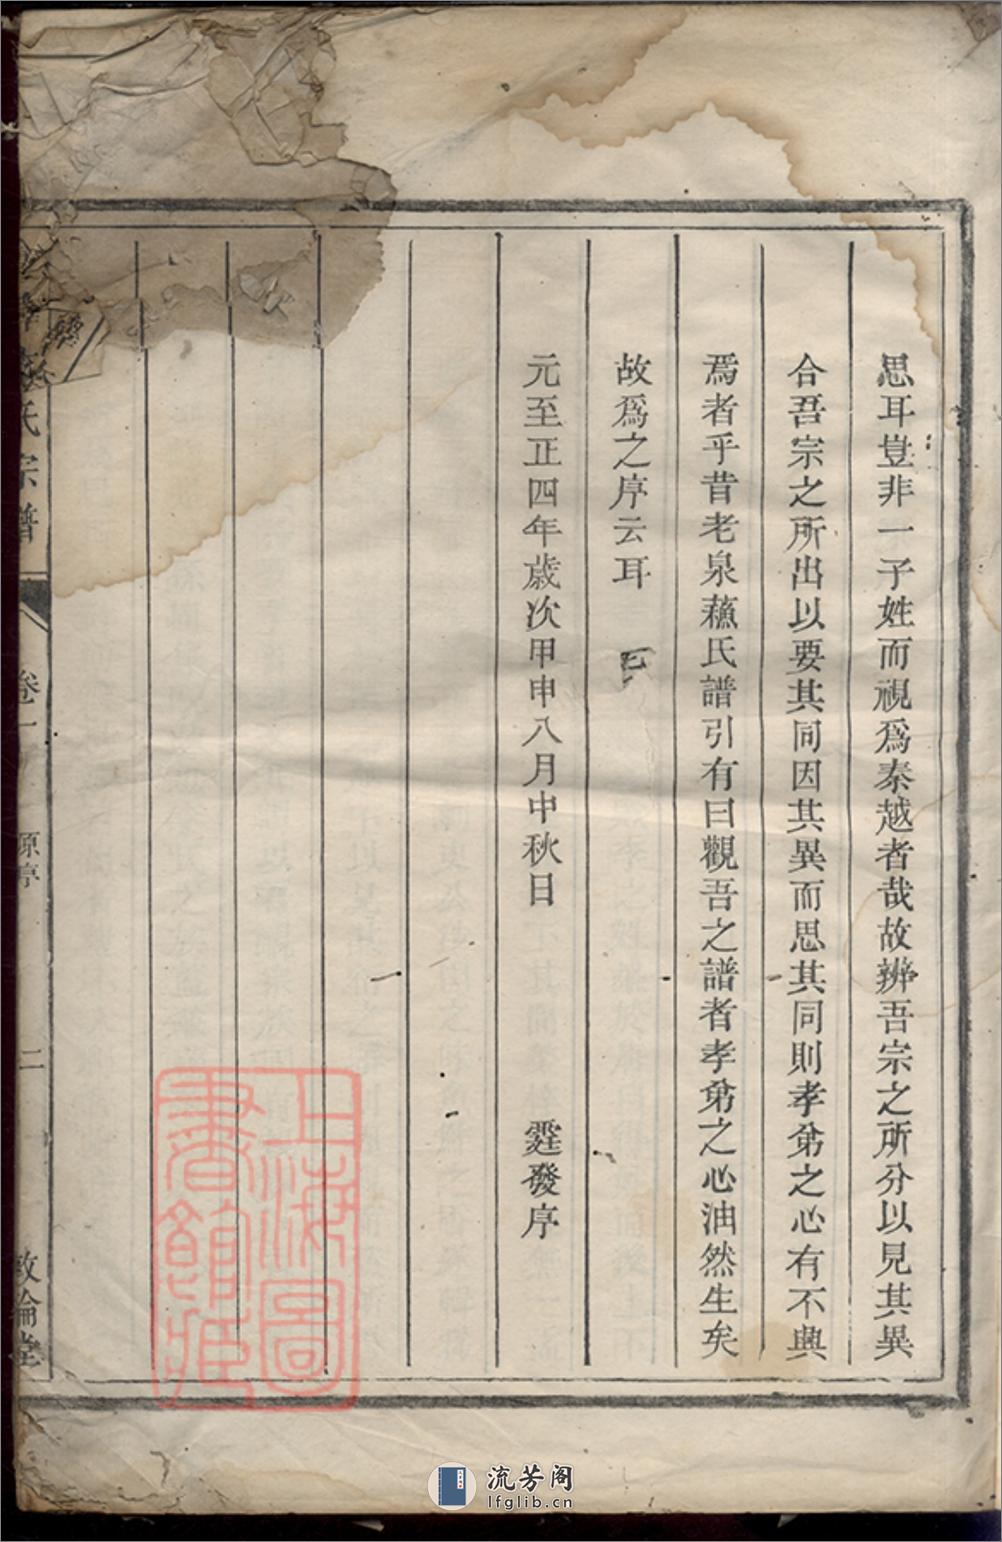 思耳豈非一子姓而視爲秦越者哉故辨吾宗之所分以見其異
合吾宗之所出以要其同因其異而思其同則孝弟之心有不興
焉者乎昔老泉蘇氏譜引有曰觀吾之譜者孝弟之心油然生矣
故爲之序云耳
元至正四年歲次甲申八月中秋日 霆發序
氏宗譜
卷一
原序
二
敦倫堂
上海圖書館藏
流芳阁
lfglib.cn